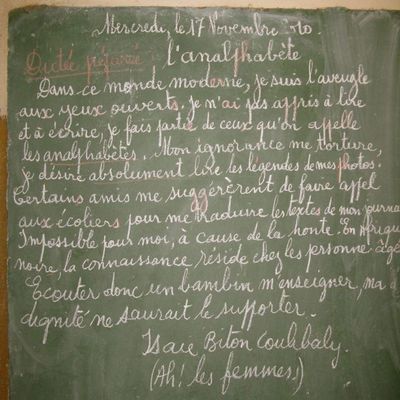 Mercredi, le 17 Novembre 2010.
Dictée préparée : l'analphabète
Dans ce monde moderne, je suis l'aveugle
aux yeux ouverts. je n'ai pas appris à lire
et à écrire, je fais partie de ceux qu'on appelle
les analphabètes. Mon ignorance me torture,
je désire absolument lire les légendes de mes photos.
Certains amis me suggèrèrent de faire appel
aux écoliers pour me traduire les textes de mon journal
Impossible pour moi, à cause de la honte. En Afrique
noire, la connaissance réside chez les personne âgé
Ecouter donc un bambin m'enseigner, ma
dignité ne saurait le supporter.
Isaïe Biton Coulibaly.
(Ah! les femmes!)